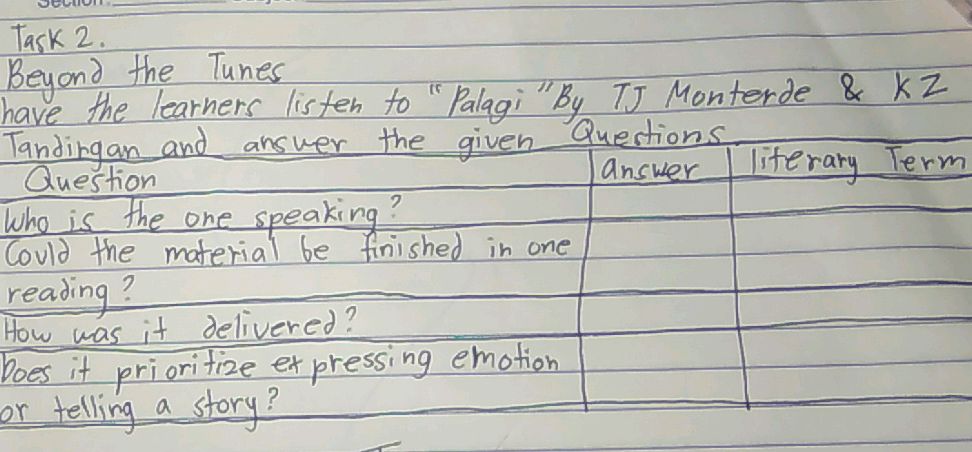 Task 2.
Beyond the Tunes
have the learners listen to "Palagi" By TJ Monterde & KZ
Tandingan and answer the given Questions
Question answer literary Term
Who is the one speaking?
Could the material be finished in one
reading?
How was it delivered?
Does it prioritize expressing emotion
or telling a story?